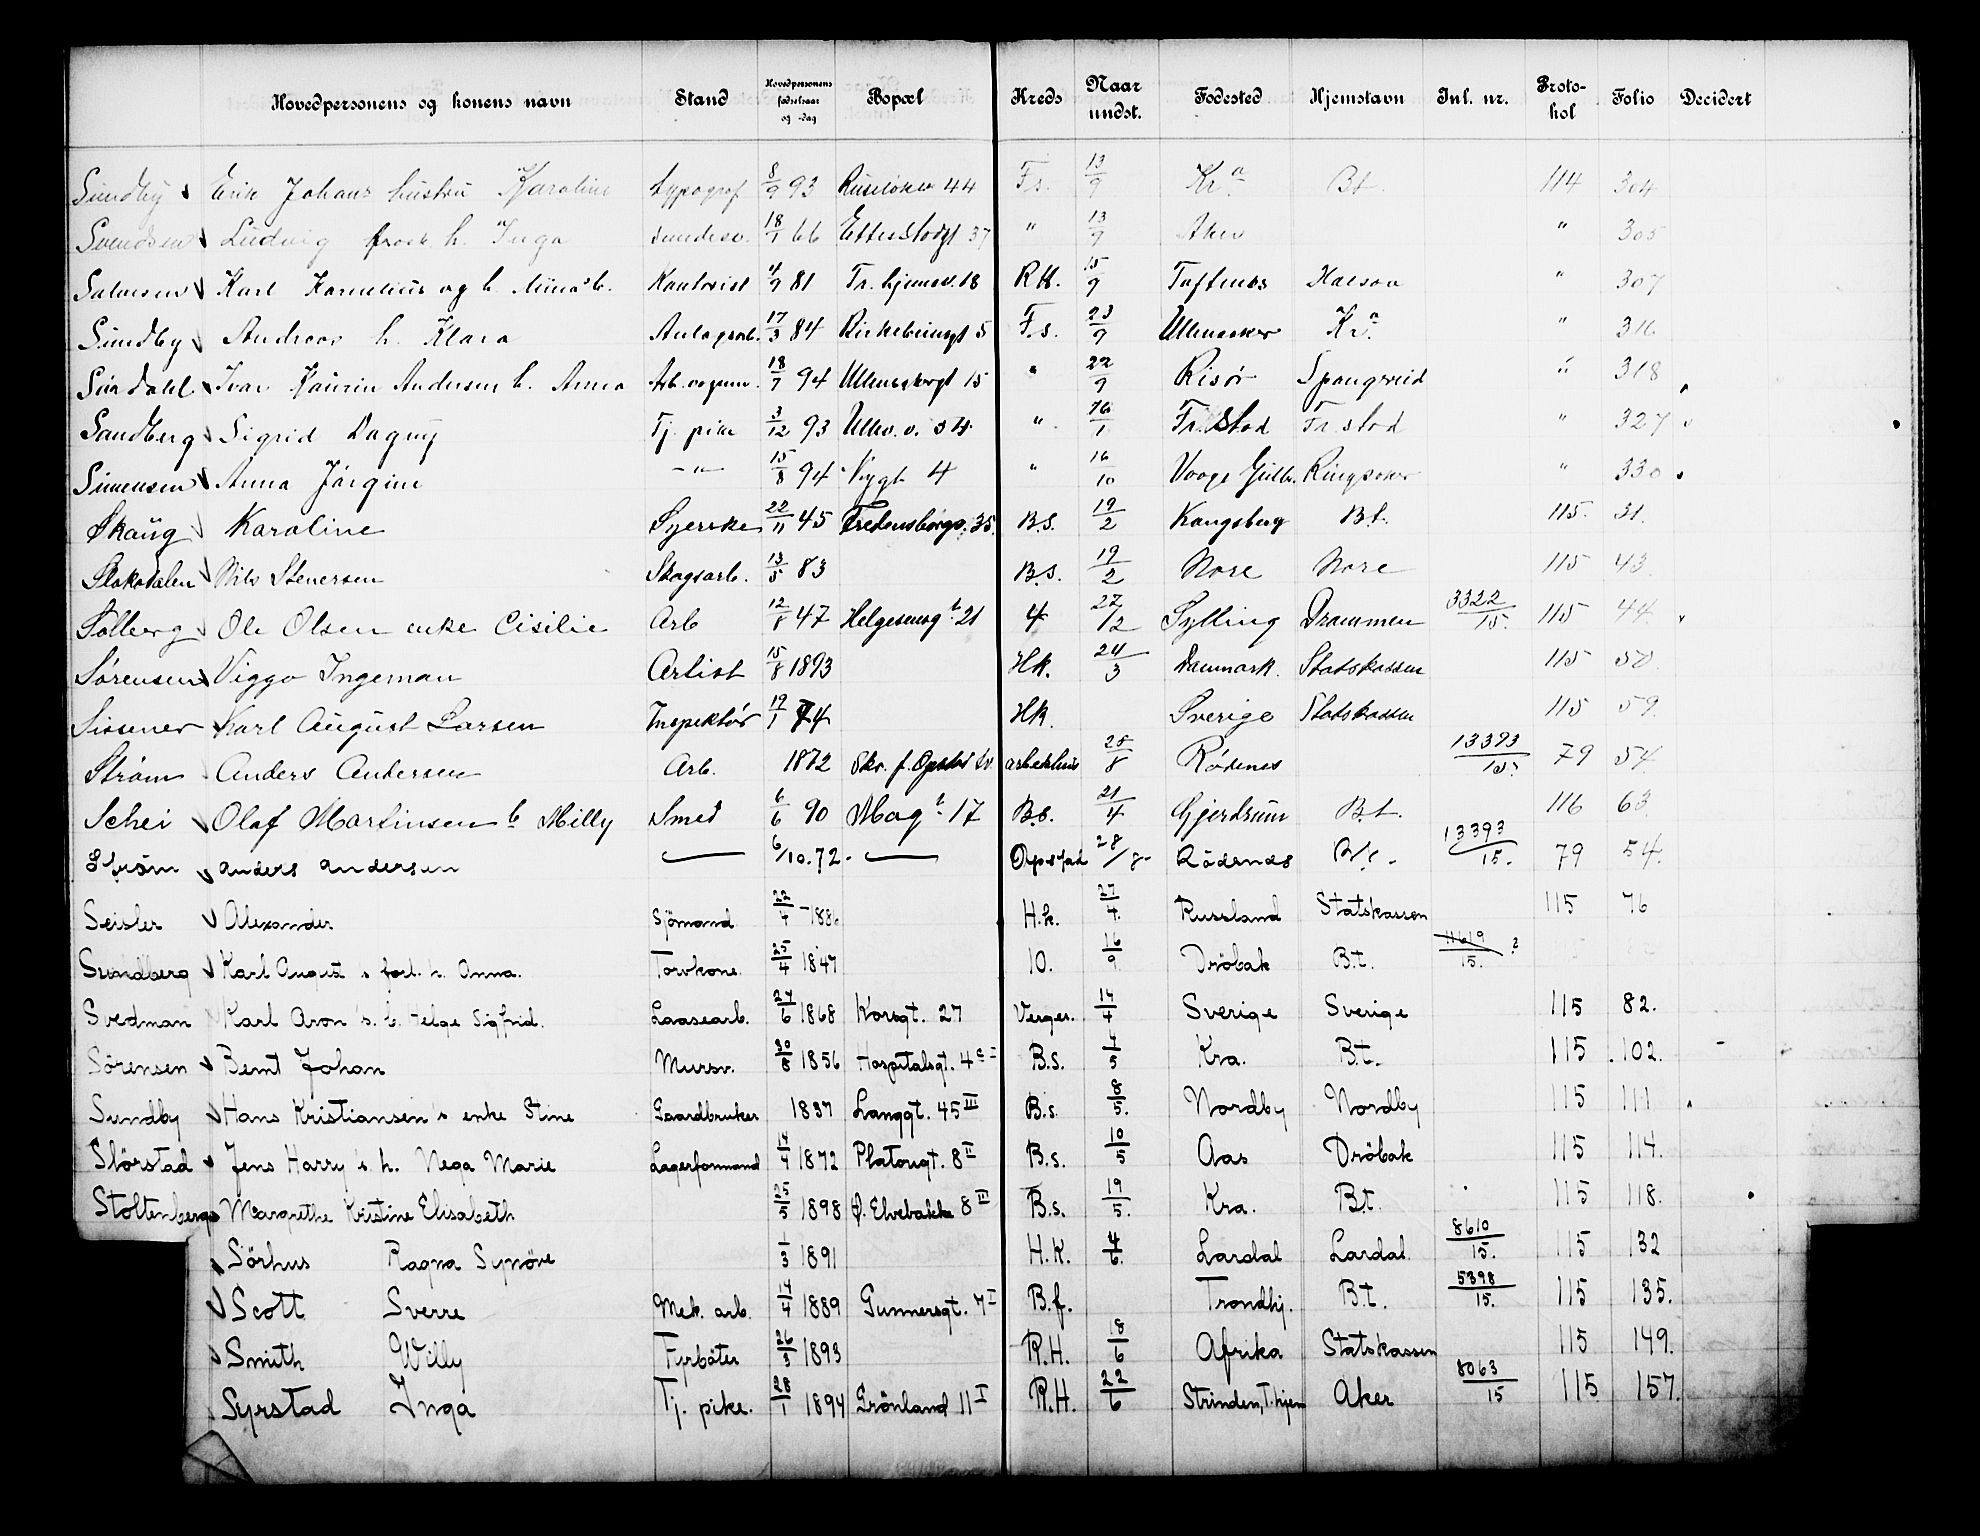 Hovedpersonens og konens navn Stand Hovedpersonens fødselsaar og -dag Bopæl Kreds Naar undst. Fødested Hjemstavn Inl. nr. Protokol Folio Decidert
Sundby Erik Johans hustru Karoline typograf 8/9 93 44 F.s. 13/9 Kr.a B.t. 114 304
Svendsen Ludvig h. Inga 18/1 66 37 " 13/9 Aker " 305
Salvesen Karl Kornelius og h. 81 18 R.H. 15/9 " 307
Sundby Andreas h. Klara 17/3 84 5 F.s. 23/9 Ullensaker Kr.a " 316
Sørdahl Ivar Andersen h. Anna 18/7 94 15 " 22/9 Risør " 318
Sandberg Sigrid Dagny Tj. pike 3/12 93 Ullev. v. " Fr.stad Fr.stad " 327
Simensen Anna Jørgine -"- 15/8 94 4 " 16/10 Ringsaker " 330
Skaug Karoline Syerske 22/11 45 Fredensborgv. 35 B.s. 19/2 Kongsberg B.t. 115. 31.
Nils Stenersen Skogsarb. 13/5 83 B.s. 19/2 Nore Nore 115 43.
Solberg Ole Olsen enke Cisilie Arb 12/8 47 Helgesensg t 21 4 27/12 Sylling Drammen 3322/15. 115 44.
Sørensen Viggo Ingeman Artist 15/8 1893 Hk. 24/3 Danmark. Statskassen 115 50.
Sissener Karl August Larsen Inspektør 19/1 74 Hk. Sverige Statskassen 115 59.
Strøm Anders Andersen Arb. 1872 28/8 Rødenes 13393/15. 79 54.
Schei Olaf Martinsen h Milly Smed 6/6 90 17 B.s. 21/4 Gjerdrum B.t. 116 63.
Strøm Anders Andersen — 6/10.72. — Opstad 28/8- Rödenes B.t. 13393/15. 79 54.
Seisler Alexander Sjömand 22/4 -1886 H.k. 27/4. Russland Statskassen 115 76
Sundberg Karl August s forl. h. Anna. 25/4 1847 10. 16/9. Dröbak B.t. 11619/15. ?
Svedman Karl Aron 's. h. Helge Sigfrid. Laasearb. 24/6 1868 Korsgt. 27 Verges. 14/4 Sverige Sverige 115 82.
Sörensen Bernt Johan Mursv. 30/8 1856 Hospitalsgt. 4c I B.s. 4/5 Kra. B.t. 115 102.
Sundby Hans Kristiansen's enke Stine Gaardbruker 1837 Langgt. 45 III B.s. 8/5. Nordby Nordby 115 111
Störstad Jens Harry's h. Nega Marie Lagerformand 14/4 1872 Platougt. 8 II B.s. 10/5 Aas Dröbak 115 114.
Stoltenberg Margrethe Kristine Elisabeth 25/5 1898 Ø. Elvebakke 8 III B.s. 19/5. Kra. B.t. 115 118.
Sörhus Ragna Synöve 1/3 1891 H.K. 4/6. Lardal Lardal. 8610/15. 115 132
Scott Sverre Mek. arb. 14/4 1889 Gunnersgt. 7 I B.f. Trondhj. B.t. 5398/15. 115 135.
Smith Willy Fyrböter 26/3 1893 R.H. 18/6 Afrika Statskassen 115 149.
Syrstad Inga Tj. pike. 28/1 1894 Grönland 11 I R.H. 22/6 Strinden, T.hjem Aker 8063/15 115 157.